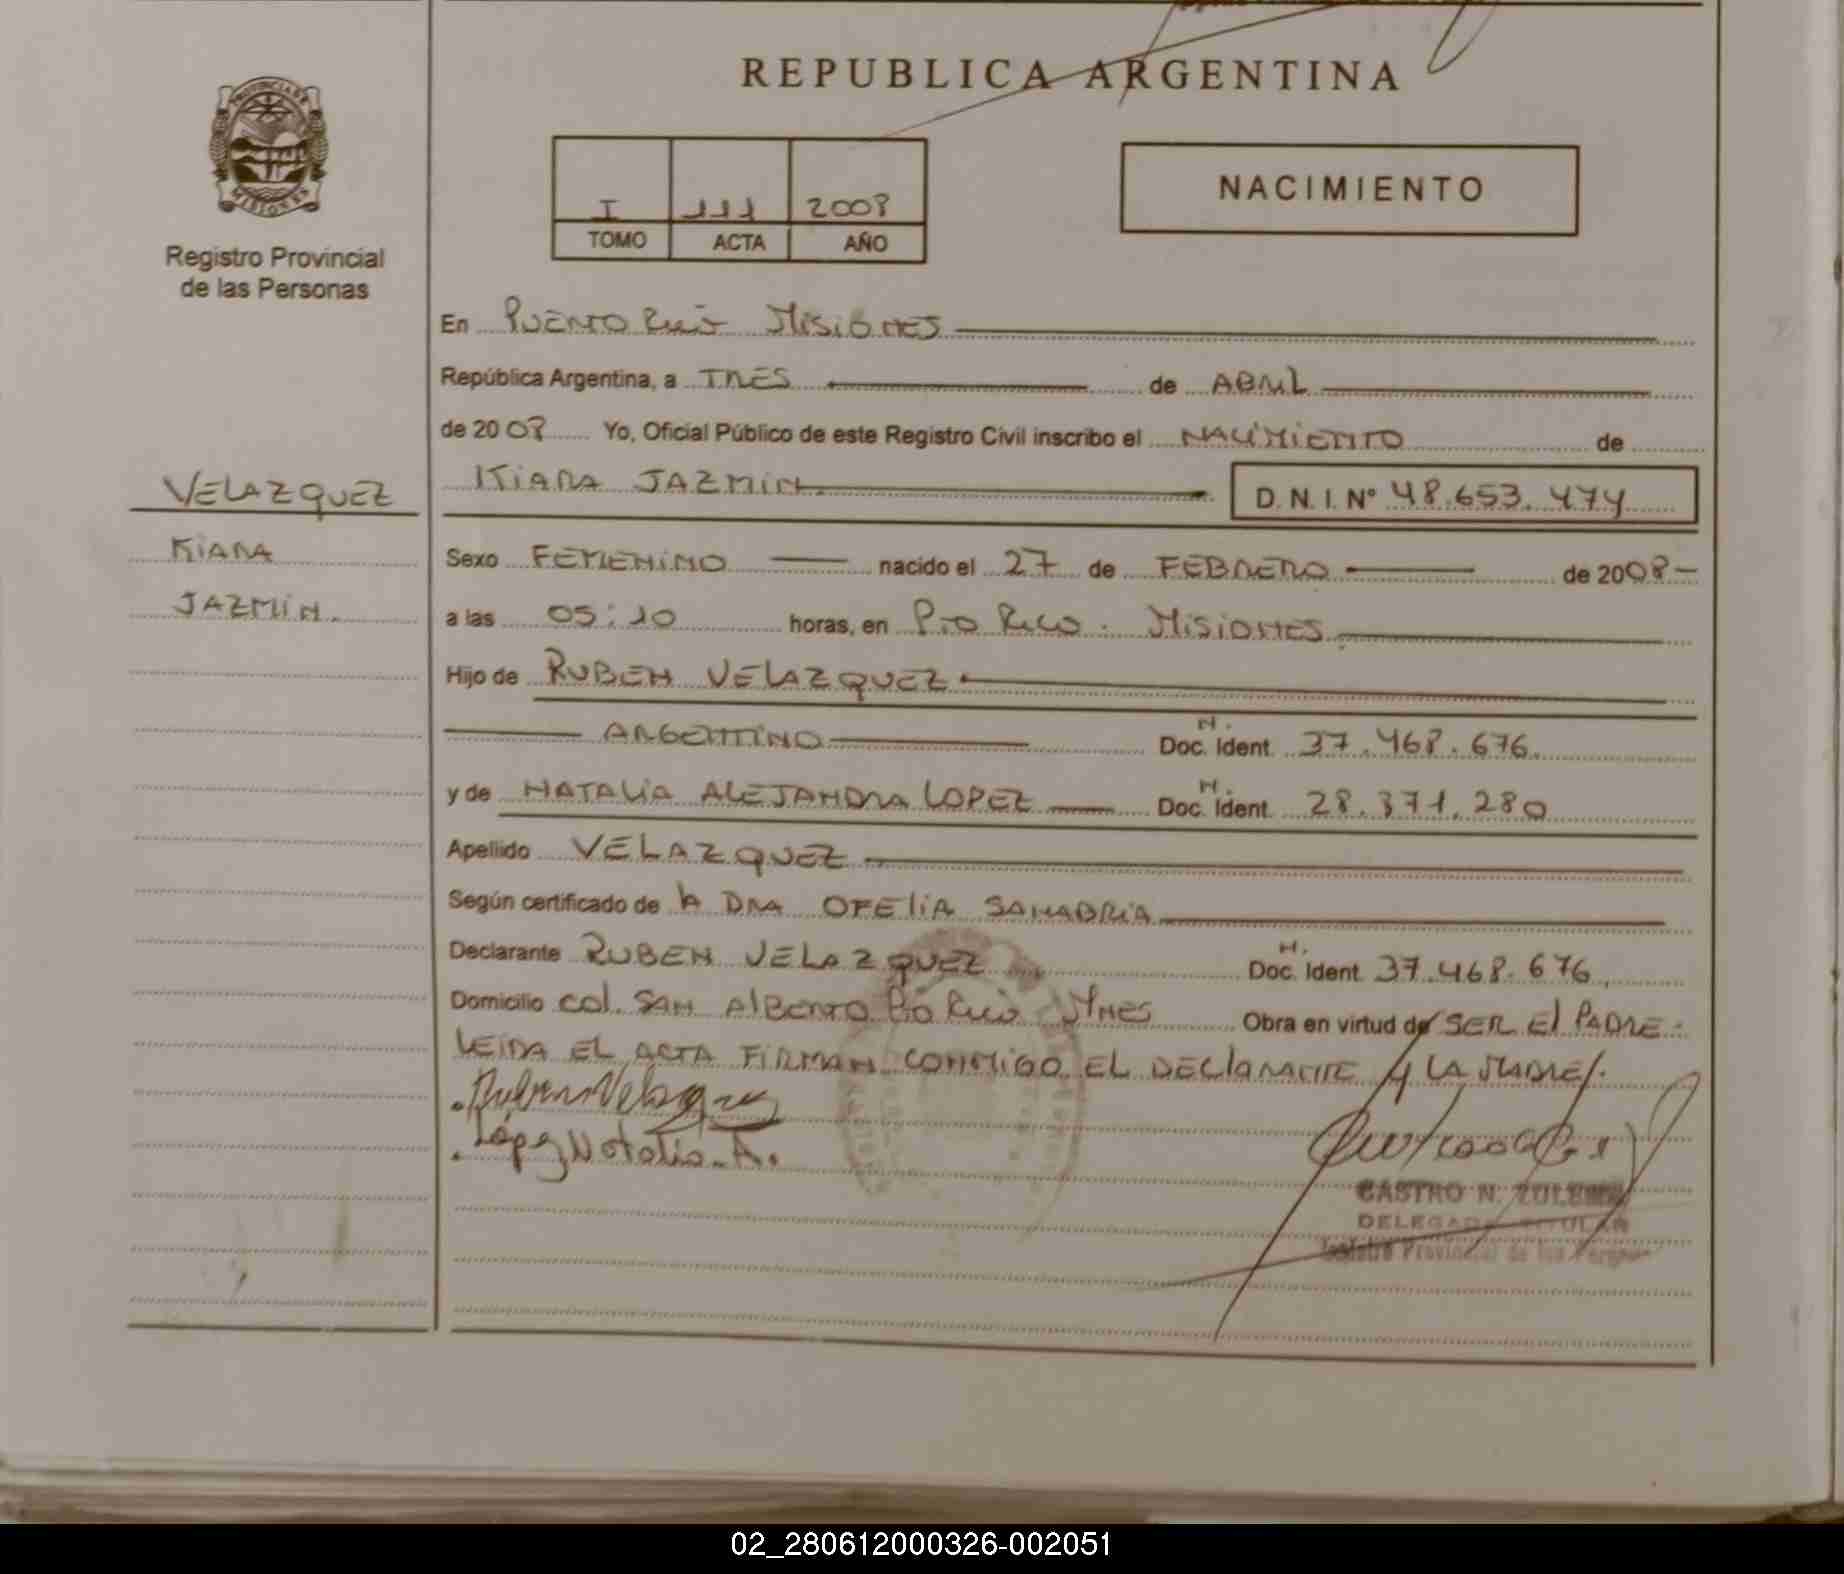 REPUBLICA ARGENTINA
PROVINCIA DE
MISIONES
Registro Provincial
de las Personas
I 111 2008
TOMO ACTA AÑO
NACIMIENTO
En PUERTO RICO MISIONES
República Argentina, a TRES de ABRIL
de 2008 Yo, Oficial Público de este Registro Civil inscribo el NACIMIENTO de
KIARA JAZMIN. D. N. I. Nº 48.653.474
VELAZQUEZ
KIARA
JAZMIN.
Sexo FEMENINO nacido el 27 de FEBRERO de 2008
a las 05:10 horas, en Pto RICO. MISIONES
Hijo de RUBEN VELAZQUEZ
ARGENTINO N. Doc. Ident. 37.468.676.
y de NATALIA ALEJANDRA LOPEZ N. Doc. Ident. 28.371.280
Apellido VELAZQUEZ
Según certificado de la DRA OFELIA SANABRIA
Declarante RUBEN VELAZQUEZ N. Doc. Ident. 37.468.676
Domicilio COL. SAN ALBERTO Pto RICO MNES Obra en virtud de SER EL PADRE.
LEIDA EL ACTA FIRMAN CONMIGO EL DECLARANTE Y LA MADRE.
Ruben Velazquez
López Natalia A.
CASTRO N. ZULEMA
DELEGADA TITULAR
Registro Provincial de las Personas
02_280612000326-002051